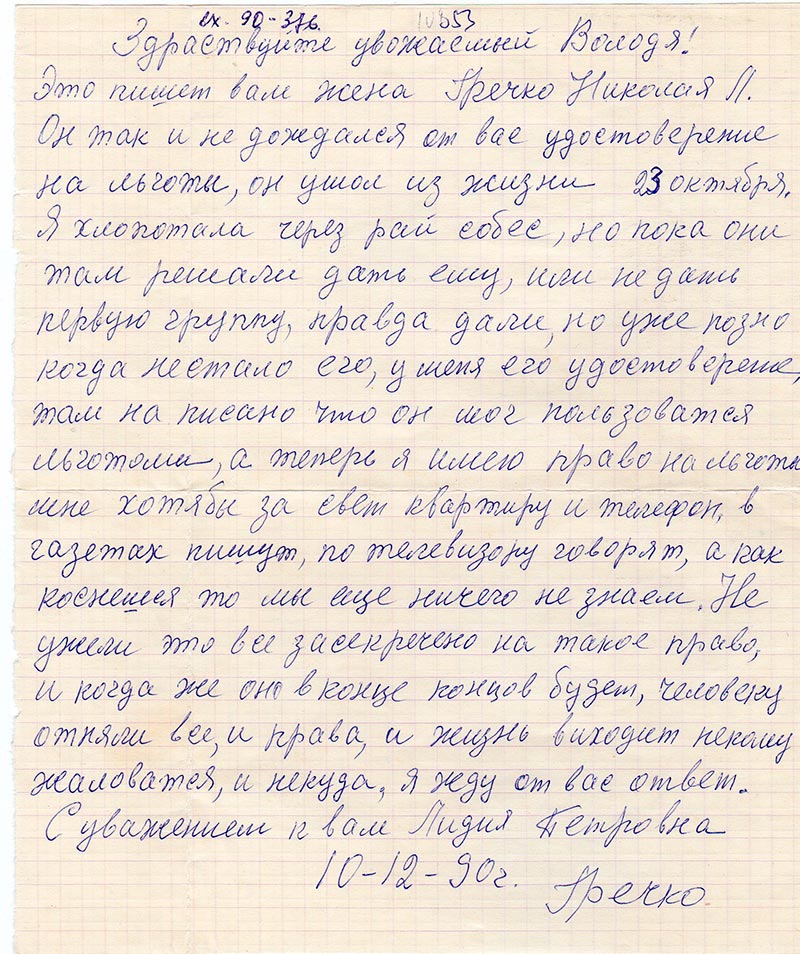 вх. 90-376. 10353
Здраствуйте уважаемый Володя!
Это пишет вам жена Гречко Николая П.
Он так и не дождался от вас удостоверение
на льготы, он ушол из жизни 23 октября.
Я хлопотала через рай собес, но пока они
там решали дать ему, или не дать
первую группу, правда дали, но уже позно
когда нестало его, у меня его удостоверение,
там на писано что он мог пользоватся
льготоми, а теперь я имею право на льготы
мне хотябы за свет квартиру и телефон, в
газетах пишут, по телевизору говорят, а как
коснешся то мы еще ничего не знаем. Не
ужели это все засекречено на такое право,
и когда же оно в конце концов будет, человеку
отняли все, и права, и жизнь виходит некому
жаловатся, и некуда, я жду от вас ответ.
С уважением к вам Лидия Петровна
10-12-90г. Гречко